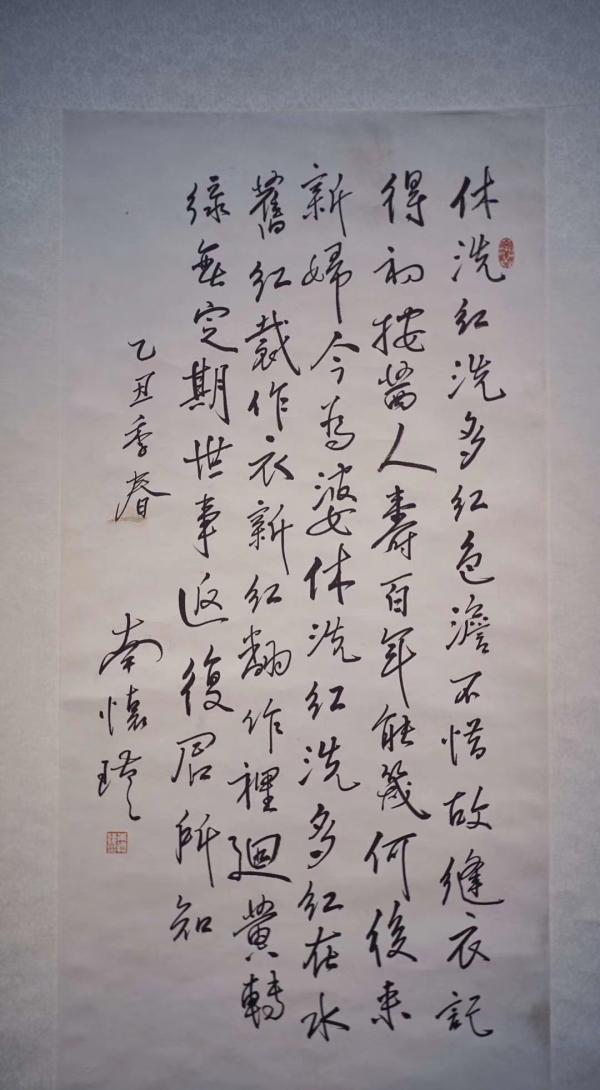 休洗紅洗多紅色澹不惜故縫衣記
得初按茜人壽百年能幾何後来
新婦今為婆休洗紅洗多紅在水
舊紅裁作衣新紅翻作裡迴黄轉
綠無定期世事返復君所知
乙丑季春
南懷瑾